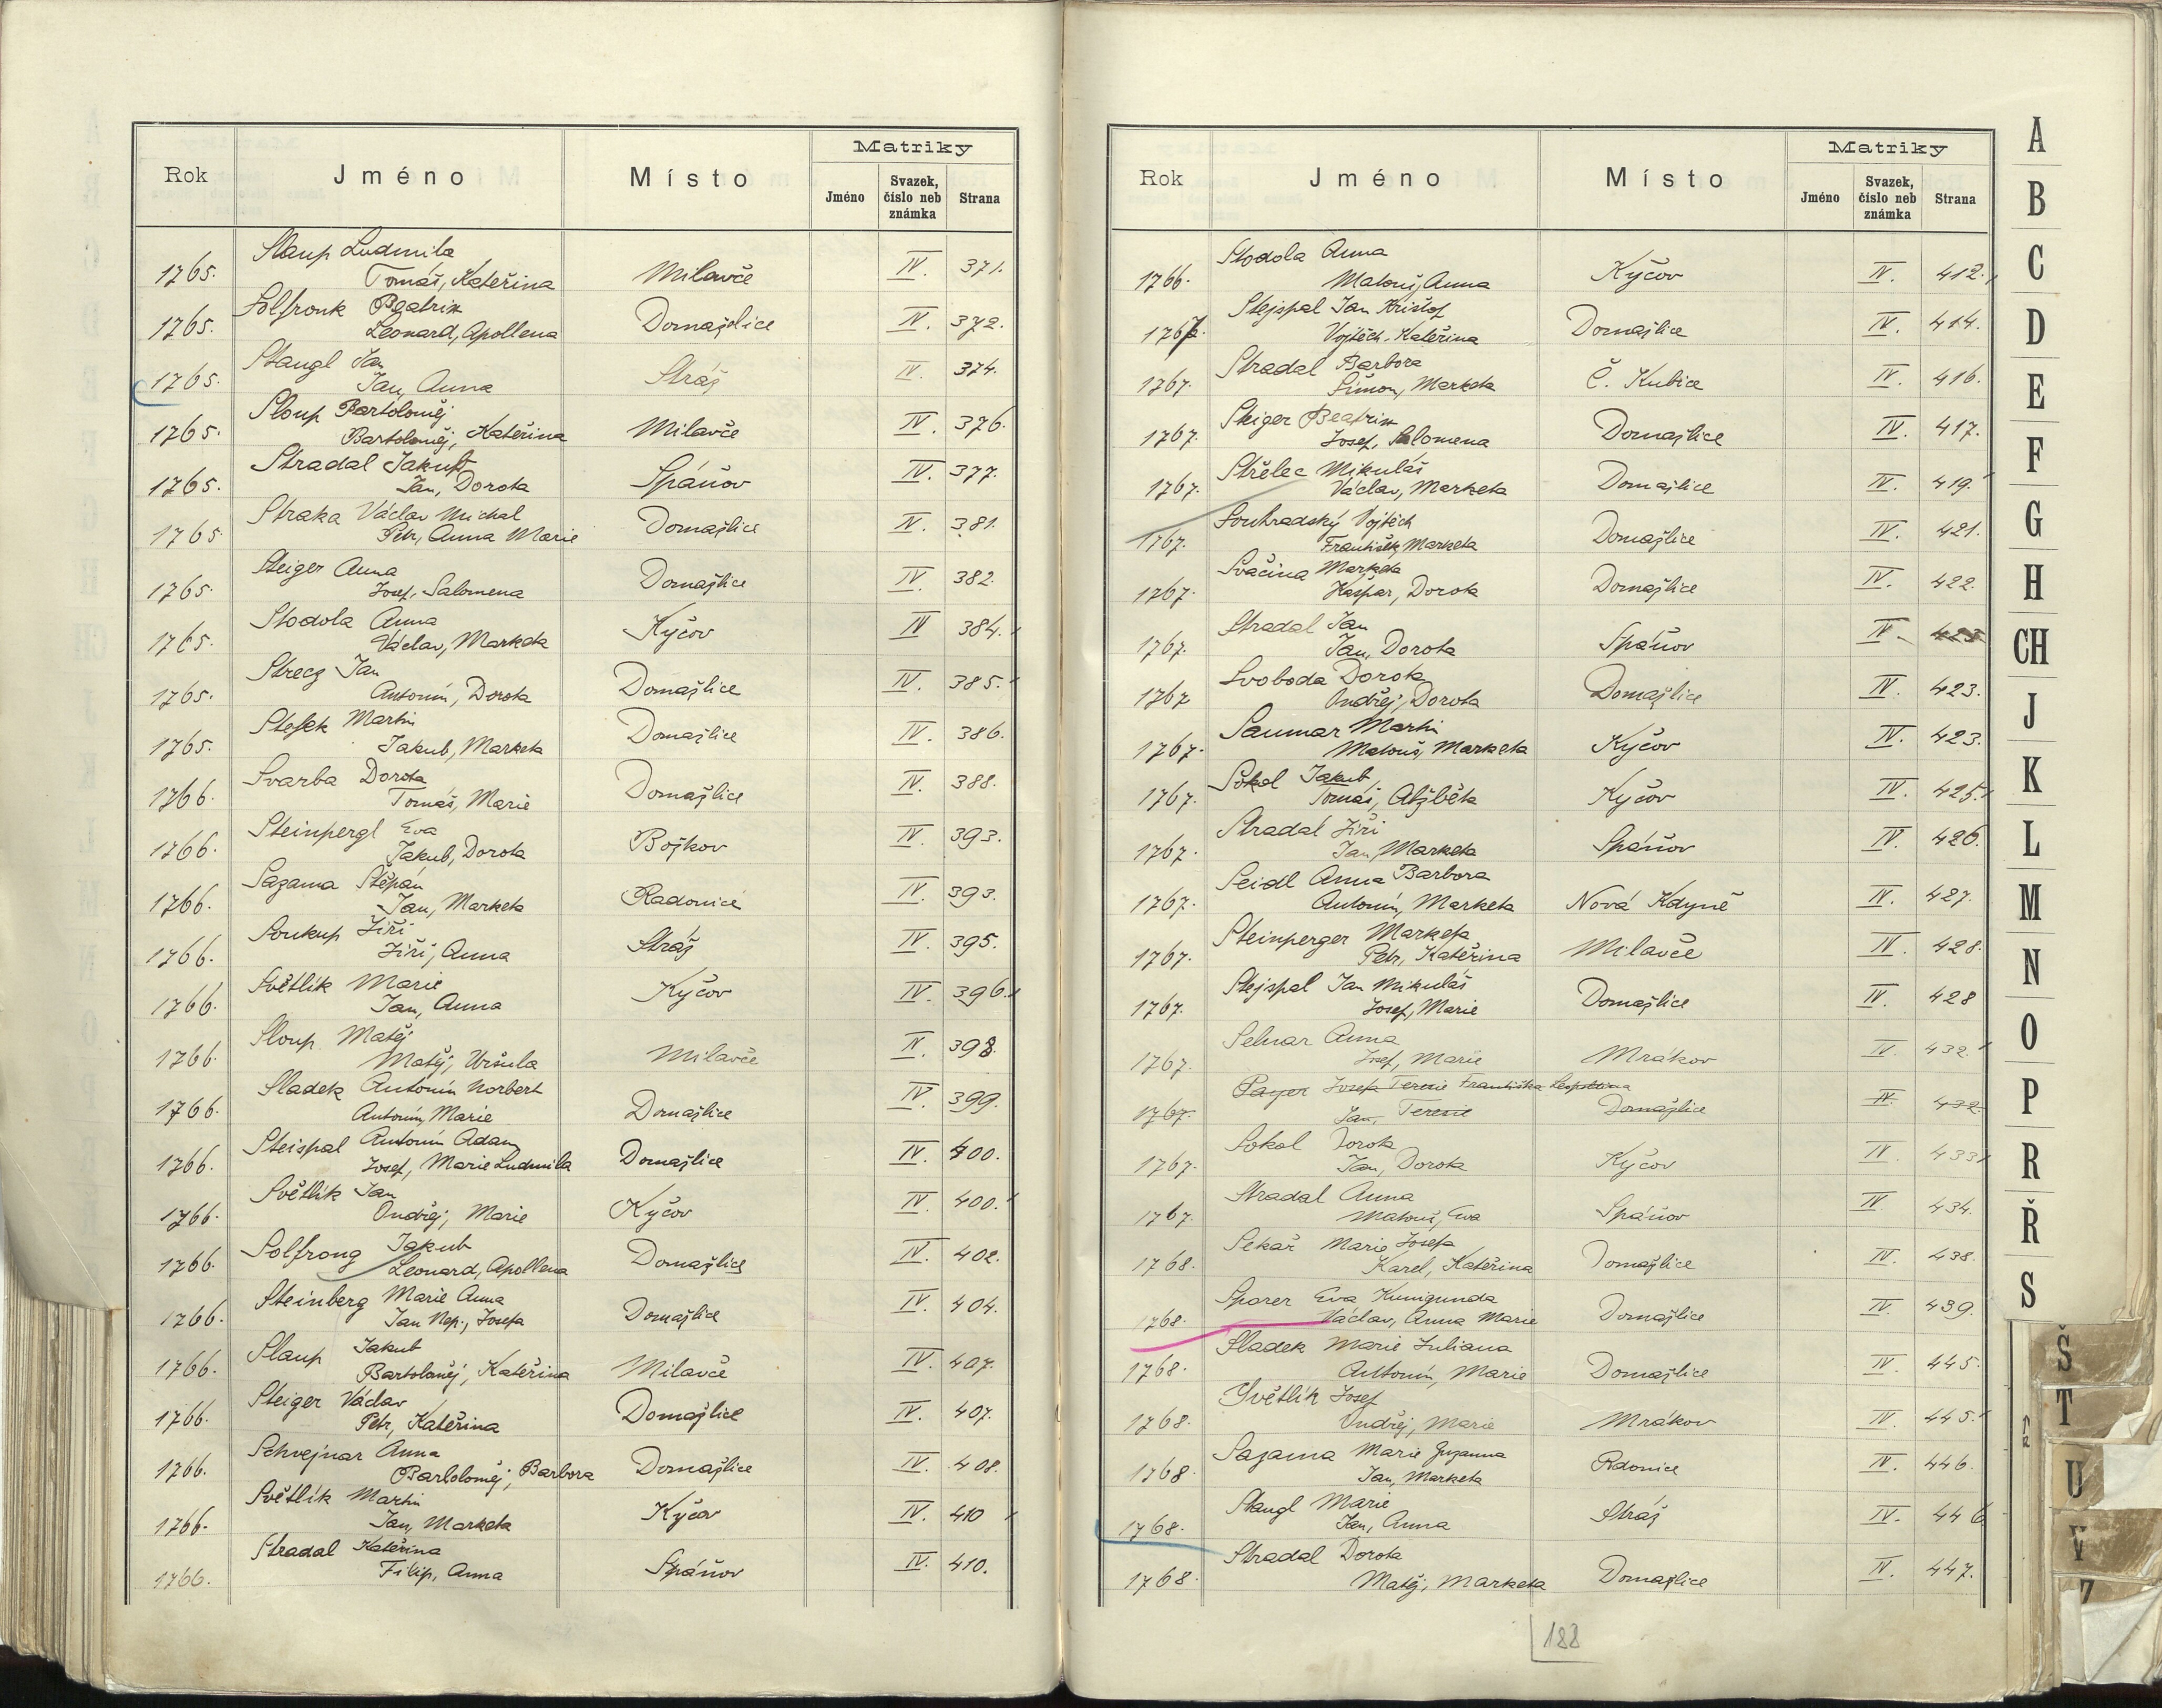 Rok Jméno Místo Matriky
Jméno Svazek, číslo neb známka Strana
Slaup Ludmila
1765. Tomáš, Kateřina Milavče IV. 371.
Solfronk Beatrix
1765. Leonard, Apollena Domažlice IV. 372.
Stangl Jan
1765. Jan, Anna Stráž IV. 374.
Sloup Bartoloměj
1765. Bartoloměj, Kateřina Milavče IV. 376.
Stradal Jakub
1765. Jan, Dorota Spáňov IV. 377.
Straka Václav Michal
1765 Petr, Anna Marie Domažlice IV. 381.
Steiger Anna
1765. Josef, Salomena Domažlice IV. 382.
Stodola Anna
1765. Václav, Marketa Kyčov IV 384.
Strecz Jan
1765. Antonín, Dorota Domažlice IV. 385.
Stefek Martin
1765. Jakub, Marketa Domažlice IV. 386.
Svarba Dorota
1766. Tomáš, Marie Domažlice IV. 388.
Steinpergl Eva
1766. Jakub, Dorota Božkov IV. 393.
Sazama Štěpán
1766. Jan, Marketa Radonice IV. 393.
Soukup Jiří
1766. Jiří, Anna Stráž IV. 395.
Světlík Marie
1766. Jan, Anna Kyčov IV. 396.
Sloup Matěj
1766. Matěj, Uršula Milavče IV. 398.
Sladek Antonín Norbert
1766. Antonín, Marie Domažlice IV. 399.
Steispal Antonín Adam
1766. Josef, Marie Ludmila Domažlice IV. 400.
Světlík Jan
1766. Ondřej, Marie Kyčov IV. 400.
Solfrong Jakub
1766. Leonard, Apollena Domažlice IV. 402.
Steinberg Marie Anna
1766. Jan Nep., Josefa Domažlice IV. 404.
Slaup Jakub
1766. Bartoloměj, Kateřina Milavče IV. 407.
Steiger Václav
1766. Petr, Kateřina Domažlice IV. 407.
Schvejnar Anna
1766. Bartoloměj, Barbora Domažlice IV. 408.
Světlík Martin
1766. Jan, Marketa Kyčov IV. 410
Stradal Kateřina
1766. Filip, Anna Spáňov IV. 410.
Rok Jméno Místo Matriky
Jméno Svazek, číslo neb známka Strana
Stodola Anna
1766. Matouš, Anna Kyčov IV. 412.
Stejspal Jan Krištof
1767. Vojtěch, Kateřina Domažlice IV. 414.
Stradal Barbora
1767. Šimon, Marketa Č. Kubice IV. 416.
Steiger Beatrix
1767. Josef, Salomena Domažlice IV. 417.
Střelec Mikuláš
1767. Václav, Marketa Domažlice IV. 419.
Souhradský Vojtěch
1767. František, Marketa Domažlice IV. 421.
Svačina Marketa
1767. Kašpar, Dorota Domažlice IV. 422.
Stradal Jan
1767. Jan, Dorota Spáňov IV. 423
Svoboda Dorota
1767 Ondřej, Dorota Domažlice IV. 423.
Saumar Martin
1767. Matouš, Marketa Kyčov IV. 423.
Sokol Jakub
1767. Tomáš, Alžběta Kyčov IV. 425.
Stradal Jiří
1767. Jan, Marketa Spáňov IV. 426.
Seidl Anna Barbora
1767. Antonín, Marketa Nová Kdyně IV. 427.
Steinperger Marketa
1767. Petr, Kateřina Milavče IV. 428.
Stejspal Jan Mikuláš
1767. Josef, Marie Domažlice IV. 428
Selnar Anna
1767. Josef, Marie Mrákov IV. 432.
Payer Josefa Terezie Františka Leopoldina
1767. Jan, Terezie Domažlice IV. 432.
Sokol Dorota
1767. Jan, Dorota Kyčov IV. 433
Stradal Anna
1767. Matouš, Eva Spáňov IV 434.
Sekař Marie Josefa
1768. Karel, Kateřina Domažlice IV. 438.
Sporer Eva Kunigunda
1768. Václav, Anna Marie Domažlice IV. 439.
Sladek Marie Juliana
1768. Antonín, Marie Domažlice IV. 445.
Světlík Josef
1768. Ondřej, Marie Mrákov IV. 445.
Sazama Marie Zuzanna
1768. Jan, Marketa Rdonice IV. 446.
Stangl Marie
1768. Jan, Anna Stráž IV. 446
Stradal Dorota
1768. Matěj, Marketa Domažlice IV. 447.
188
A
B
C
D
E
F
G
H
CH
J
K
L
M
N
O
P
R
Ř
S
Š
T
U
V